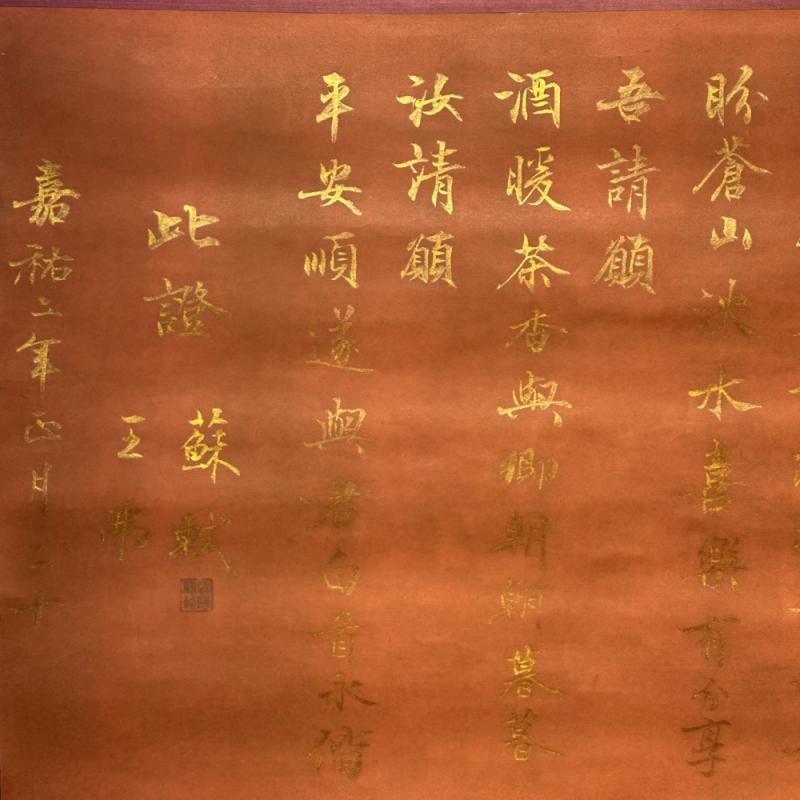 盼蒼山淡水喜樂有分享
吾請願
酒暖茶香與卿朝朝暮暮
汝請願
平安順遂與君白首永偕
此證
蘇軾
王弗
嘉祐二年正月二十